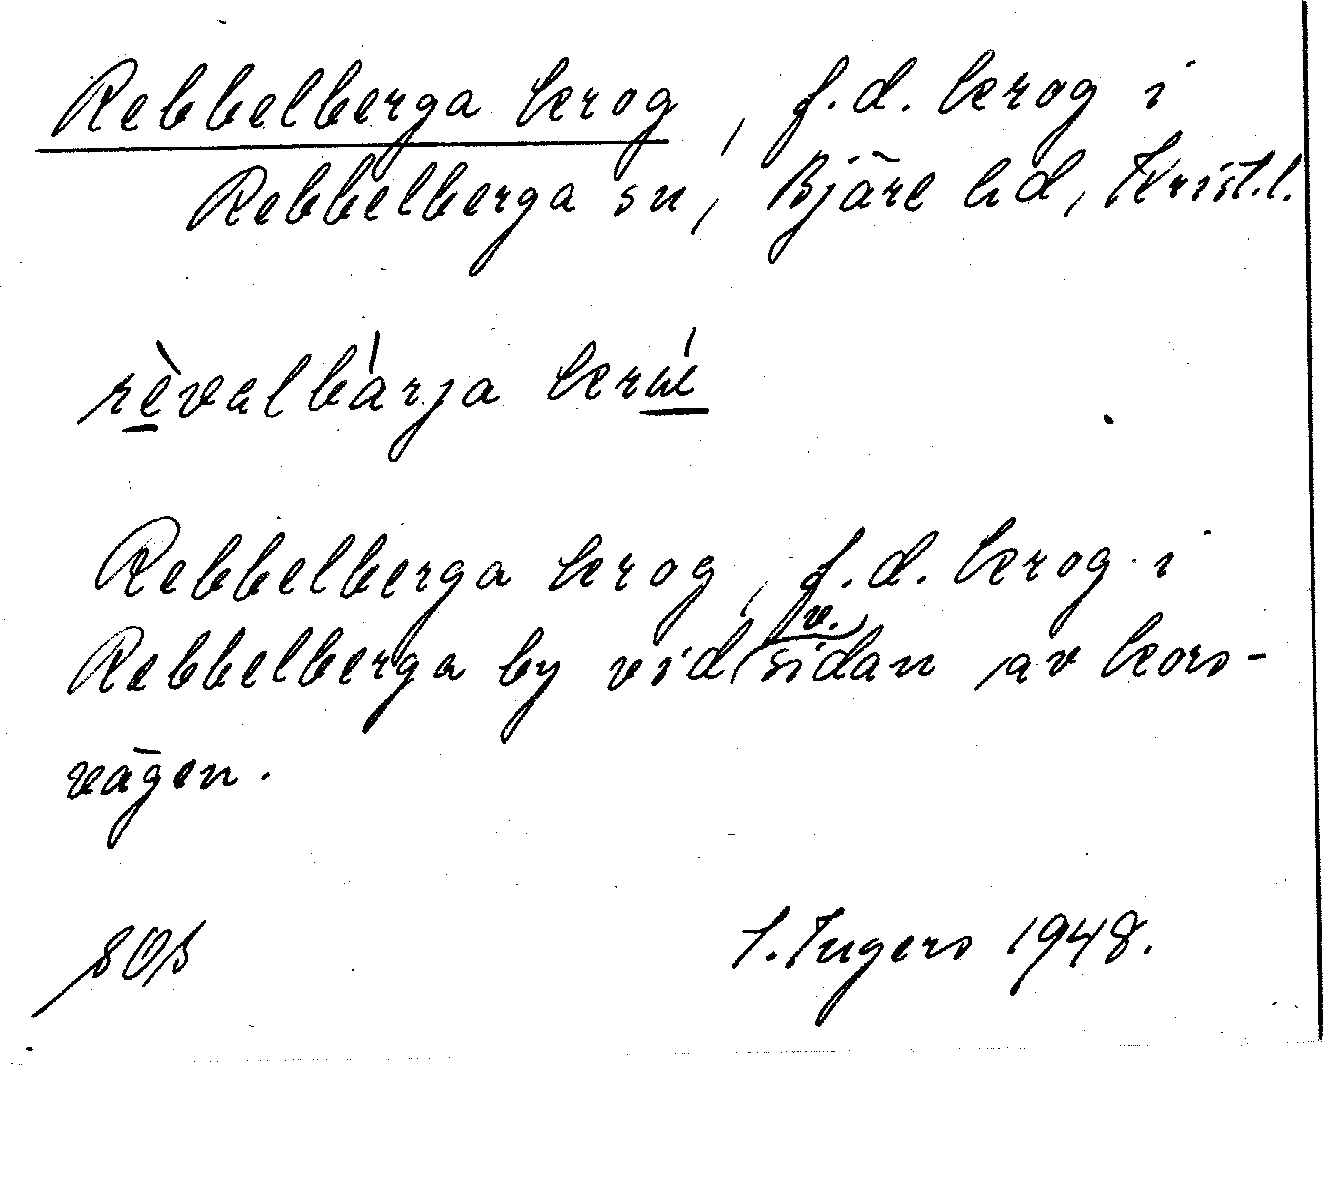 Rebbelberga krog, f.d. krog i
Rebbelberga sn, Bjäre hd, Krist.l.
rèvalbárja
Rebbelberga krog, f.d. krog i
Rebbelberga by vid v. sidan av kors-
vägen.
SOB
I. Ingers 1948.